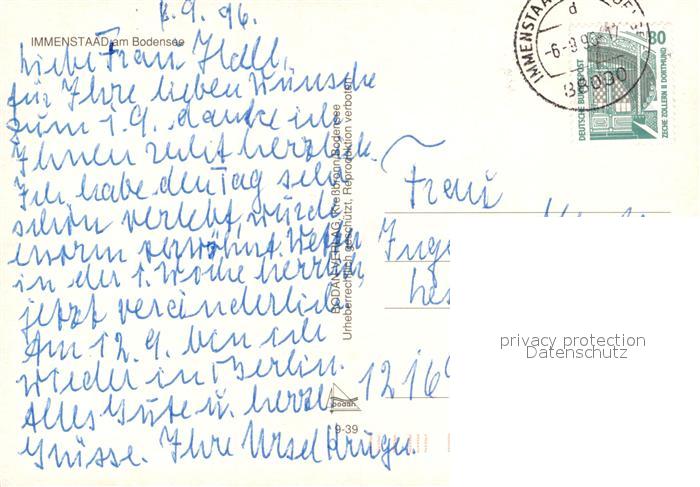 6.9.96.
IMMENSTAAD am Bodensee
Liebe Frau Hall,
für Ihre lieben Wünsche
zum 1.9. danke ich
Ihnen recht herzlich.
Ich habe den Tag sehr
schön verlebt, wurde
enorm verwöhnt. Wetter
in der 1. Woche herrlich,
jetzt veränderlich.
Am 12.9. bin ich
wieder in Berlin.
Alles Gute u. herzl.
Grüsse. Ihre Ursel Krüger.
BODAN-VERLAG, Kreßbronn/Bodensee
Urheberrechtlich geschützt, Reproduktion verboten
bodan
9-39
IMMENSTAAD
d
-6.-9.96-17
88090
80
DEUTSCHE BUNDESPOST
ZECHE ZOLLERN II DORTMUND
Frau
Inge
1216
privacy protection
Datenschutz